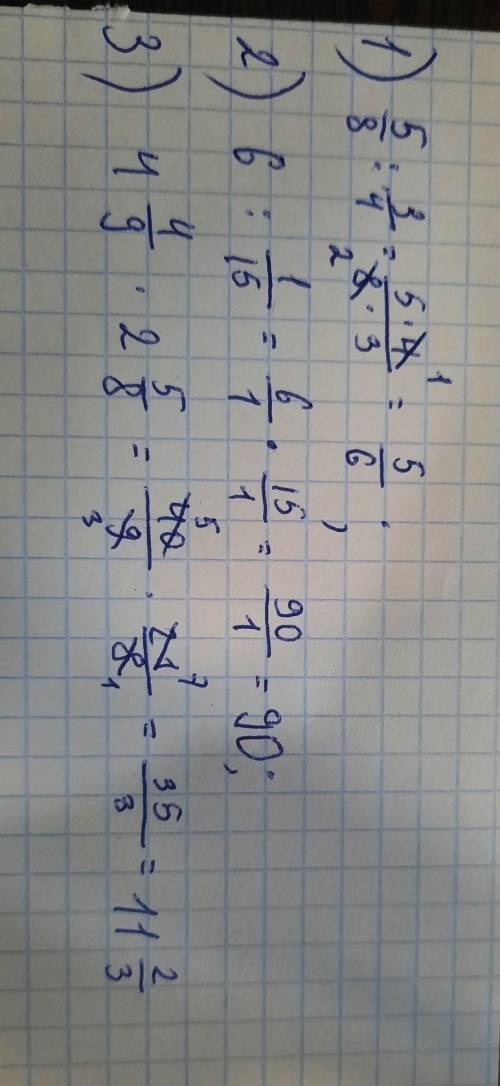 1) 5/8 : 3/4 = 5·4 1/2 8·3 = 5/6;
2) 6 : 1/15 = 6/1 · 15/1 = 90/1 = 90;
3) 4 4/9 · 2 5/8 = 40 5/9 3 · 21 7/8 1 = 35/3 = 11 2/3